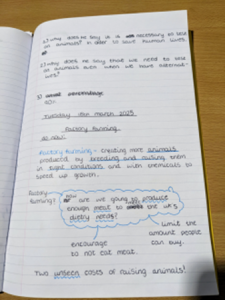 2) why does he say it is necessary to test
on animals? in order to save human lives.
3) why does he say there we need to test
on animals even when we have alternat-
ives?
Tuesday 14th March 2023
factory farming.
DO NOW:
Factory farming - creating more animals
produced by breeding and raising them
in tight conditions and with chemicals to
speed up growth.
factory
farming?
How are we going to produce
enough meat to the UK's
dietry needs?
limit the
amount people
can buy.
encourage
to not eat meat.
Two unseen cases of raising animals!